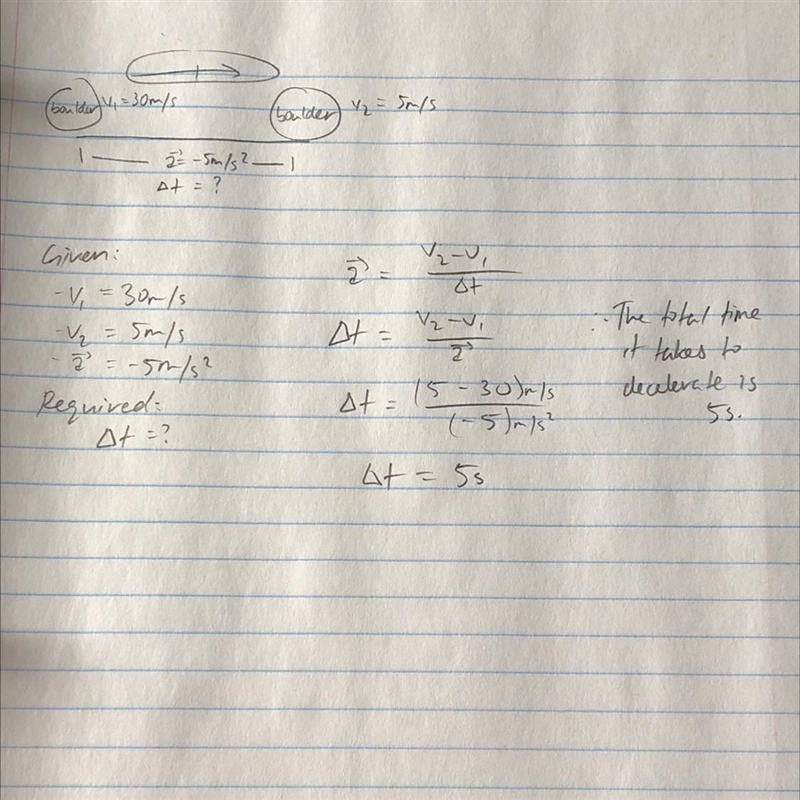 boulder V₁ = 30m/s boulder V₂ = 5m/s
a⃗ = -5m/s²
Δt = ?
Given:
- V₁ = 30m/s
- V₂ = 5m/s
- a⃗ = -5m/s²
Required:
Δt = ?
a⃗ = (V₂ - V₁) / Δt
Δt = (V₂ - V₁) / a⃗
Δt = (5 - 30)m/s / (-5)m/s²
Δt = 5s
∴ The total time
it takes to
decelerate is
5s.